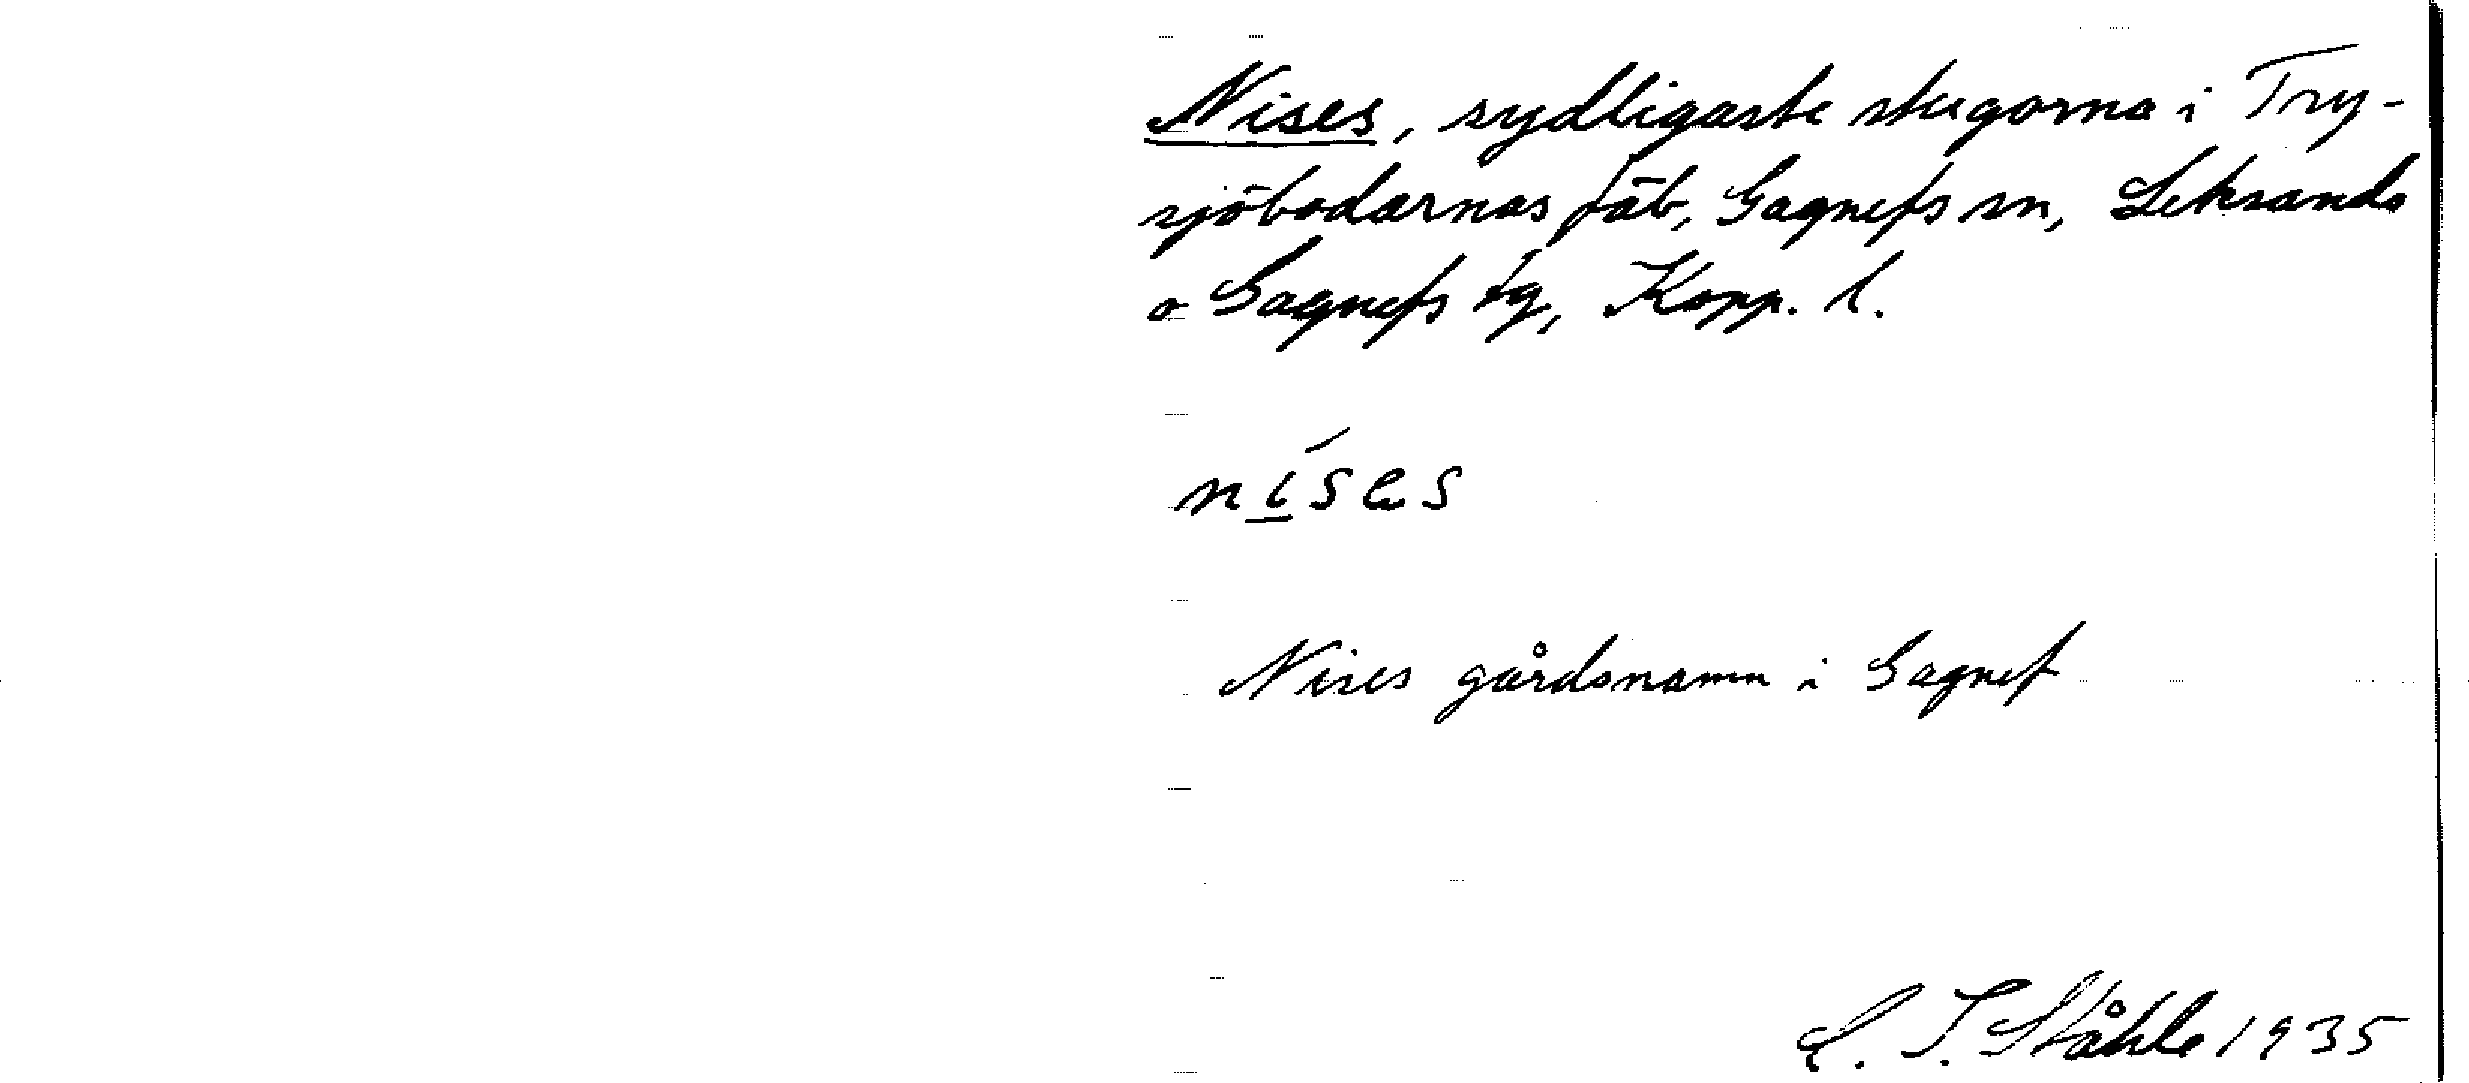 Nises, sydligaste stugorna i Try-
sjöbodarnas fäb, Gagnefs sn, Leksands
o Gagnefs tg, Kopp. l.
níses
Nises gårdsnamn i Gagnef
C. I. Ståhle 1935